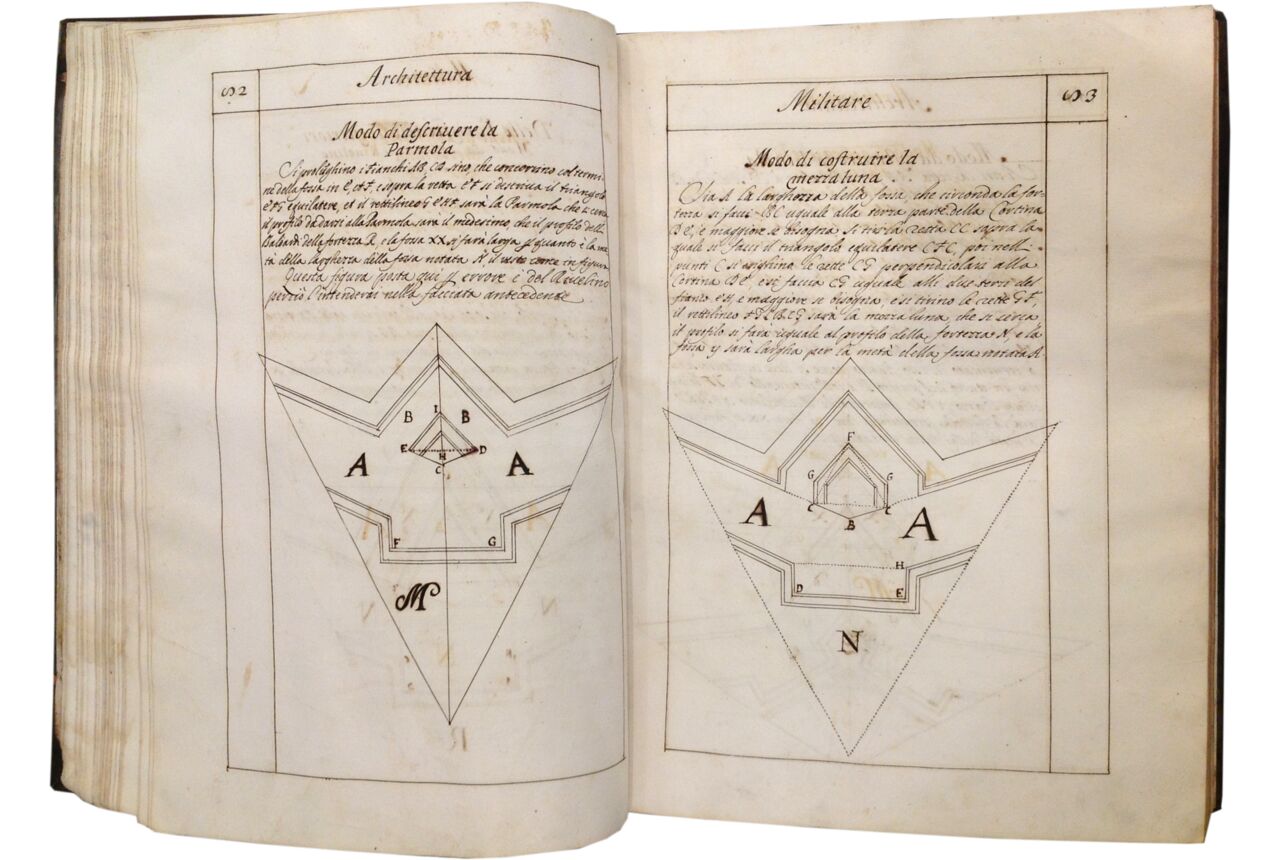 52
Architettura
Modo di descriuere la
Parmola
Si prolũghino i fianchi AB, CD sino, che concorrino col termi-
ne della fossa in e, et F, e sopra la retta eF si descriua il triangolo
equilatere, et il rettilineo sarà la Parmola che si cerca
il profilo da darsi alla Parmola sarà il medesimo che il profilo dell
Baloardi della fortezza R e la fossa XX si farà larga quanto è la me-
tà della larghezza della fossa notata A il resto come in figura
Questa figura posta qui errore è del
perciò l'intenderai nella facciata antecedente
B
I
B
E
D
H
C
A
A
F
G
M
53
Militare
Modo di costruire la
mezza luna
Sia A la larghezza della fossa, che circonda la for-
tezza si facci BC uguale alla terza parte della Cortina
DE, e maggiore se bisogna, si tiri la retta CC sopra la
quale si facci il triangolo equilatere CFC poi nelli
punti C si le rette CG perpendicolari alla
Cortina DE, e si faccia CG uguale alli due terzi del
fianco eH, e maggiore se bisogna, e si tirino le rette GF,
il rettilineo sarà la mezza luna, che si cerca
il profilo si farà uguale al profilo della fortezza N, e la
fossa y sarà largha per la metà della fossa notata A
F
G
G
C
C
B
A
A
H
D
E
N